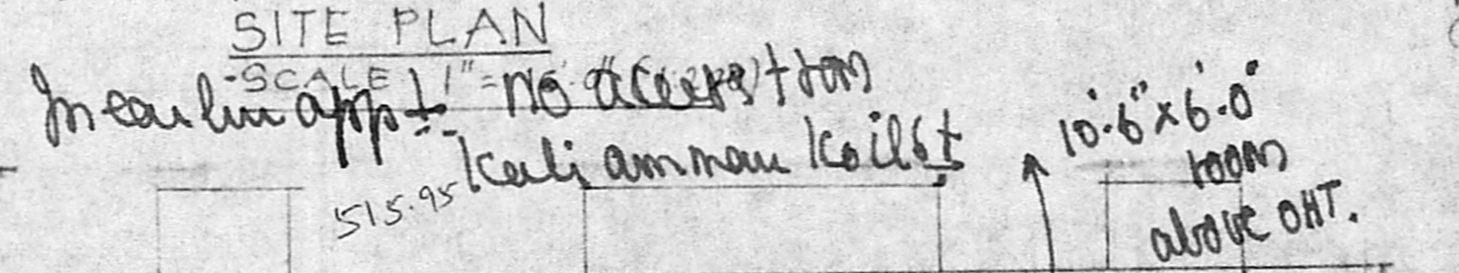 SITE PLAN
SCALE 1" =
In earlier appt no access from
Kali amman Koil St
515.95
10'.6" x 6'.0"
room
above OHT.